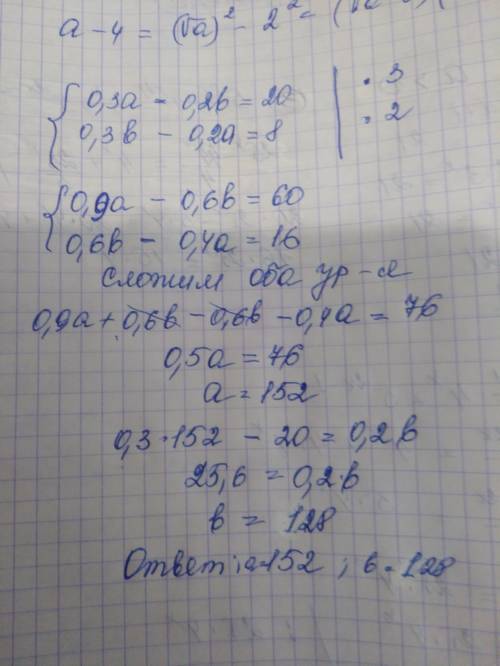 a - 4 = (√a)² - 2² = (√a
{ 0,3a - 0,2b = 20 | · 3
{ 0,3b - 0,2a = 8 | · 2
{ 0,9a - 0,6b = 60
{ 0,6b - 0,4a = 16
Сложим оба ур-я
0,9a + 0,6b - 0,6b - 0,4a = 76
0,5a = 76
a = 152
0,3 · 152 - 20 = 0,2b
25,6 = 0,2b
b = 128
Ответ: a=152 ; b = 128